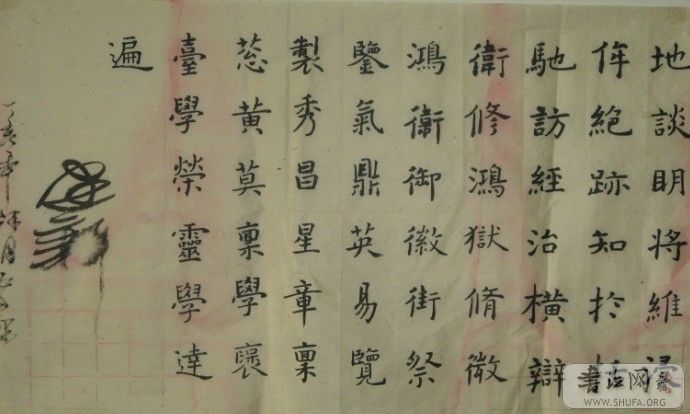 地談明將維
侔絕跡知於
馳訪經治橫辯
衛修鴻獄脩微
鴻衛御徽街祭
鑒氣鼎英易覽
製秀昌星章稟
黃莫稟學褒
臺學榮靈學達
遍
书法网
WWW.SHUFA.ORG